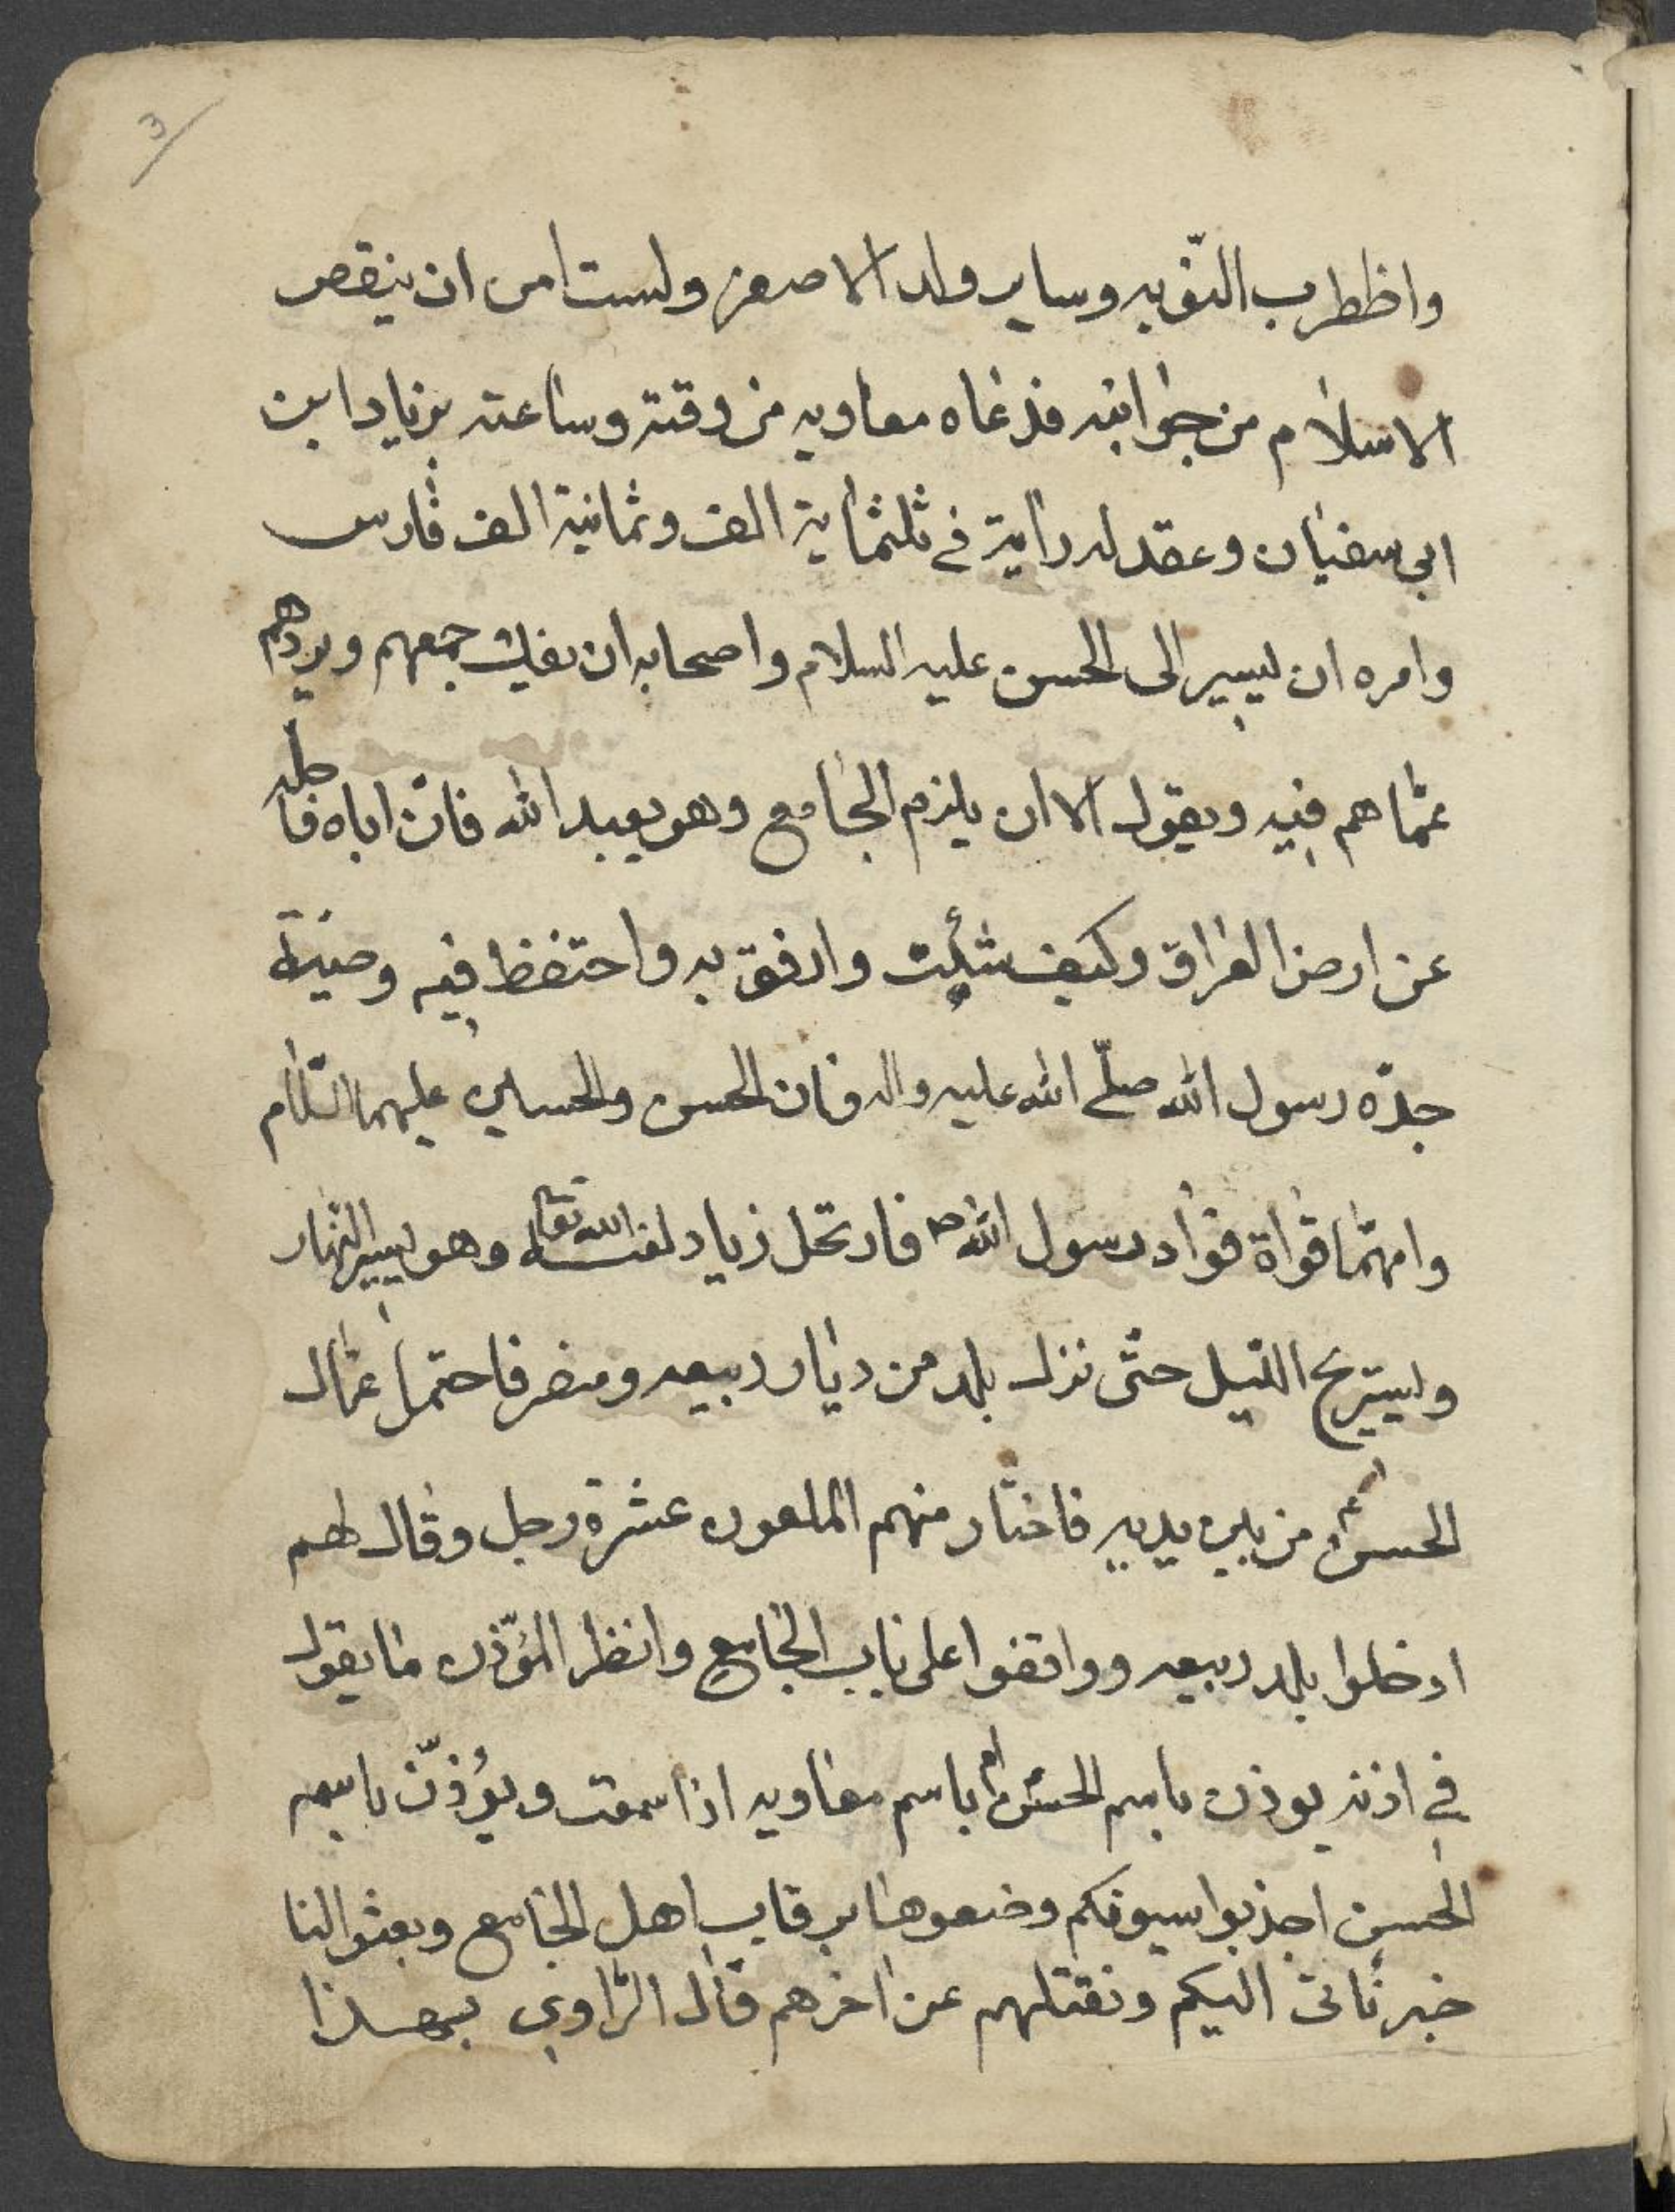 3
واظطرب النوبه وساير ولد الاصفر ولست امن ان ينقص
الاسلام من جوانبه فدعاه معاويه من وقته وساعته بزياد ابن
ابي سفيان وعقد له راية في ثلثماية الف وثمانية الف فارس
وامره ان ليسير الى الحسن عليه السلام واصحابه ان يفك جمعهم ويردهم
عما هم فيه ويقول الا ان يلزم الجامع وهو يعبد الله فان اباه فاطرده
عن ارض العراق وكيف شئت وارفق به واحتفظ فيه وصية
جده رسول الله صلى الله عليه واله فان الحسن والحسين عليهما السلام
وامهما قواة فواد رسول الله ص فارتحل زياد لعنه الله تعالى وهو ليسير النهار
وليستريح الليل حتى نزل بلد من ديار ربيعه ومضر فاحتمل عمال
الحسن ع من بين يديه فاختار منهم الملعون عشرة رجل وقال لهم
ادخلوا بلد ربيعه وواقفوا على باب الجامع وانظر المؤذن ما يقول
في اذنه يوذن باسم الحسن ام باسم معاويه اذا سمعت ويؤذن باسم
الحسن اجذبوا سيوفكم وضعوها برقاب اهل الجامع وبعثوا لنا
خبر ناتى اليكم ونقتلهم عن اخرهم قال الراوي بهذا